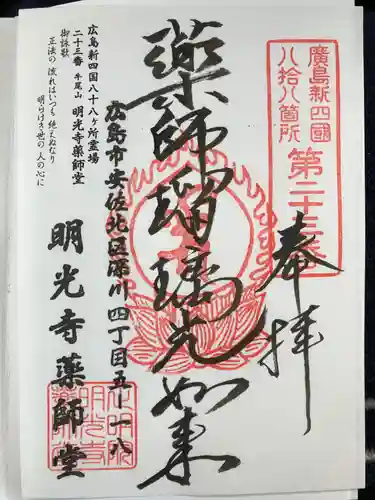 廣島新四國
八拾八箇所
第二十三番
奉拝
薬師瑠璃光如来
広島市安佐北区深川四丁目五ー一八
明光寺薬師堂
広島新四国八十八ヶ所霊場
二十三番 牛尾山 明光寺薬師堂
御詠歌
正法の 流れはいつも 絶えぬなり
明らけき世の 人の心に